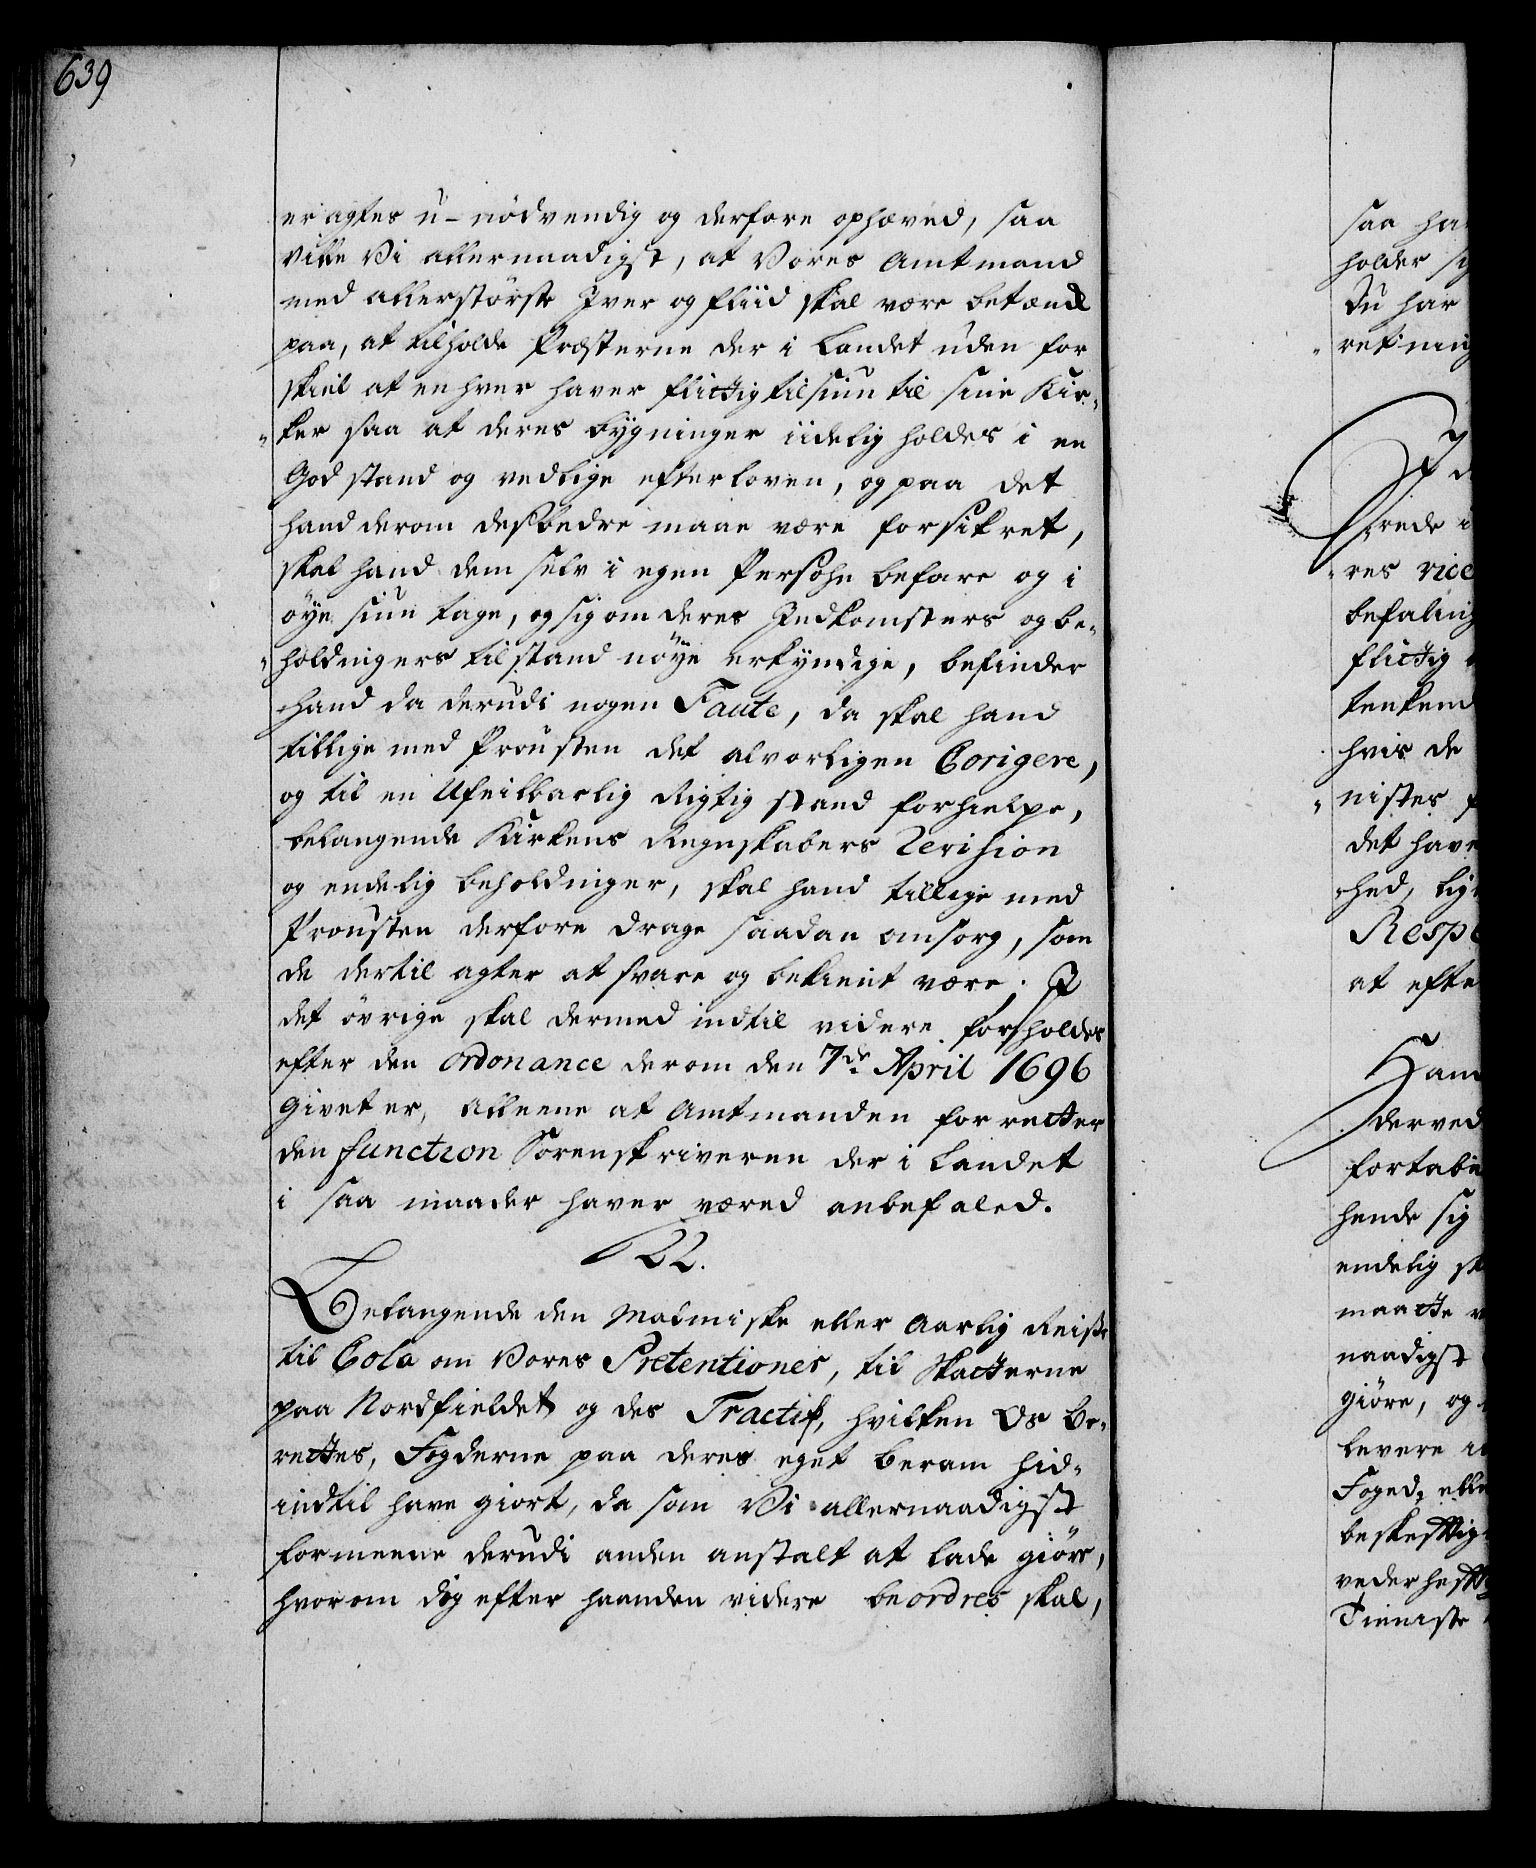 639
er agtes u-nödvendig og derfore ophæved, saa
ville Vi allernaadigst, at Vores Amtmand
med allerstörste Iver og fliid skal være betænkt
paa, at tilholde Præsterne der i Landet uden for
skiel at enhver haver flittig tilsiun til sine Kir„
„ker saa at deres bygninger iidelig holdes i en
God stand og vedlige efter loven, og paa det
hand derom desbedre maae være forsikret,
skal hand dem selv i egen Persohn befare og i
öye siun tage, og sig om deres Indkomsters og be„
„holdningers tilstand nöye erkyndige, befinder
hand da derudi nogen Faute, da skal hand
tillige med Prousten det alvorligen Corigere,
og til en Ufeilbarlig Rigtig stand forhielpe,
belangende Kirkens Regnskabers Revision
og endelig beholdninger, skal hand tillige med
Prousten derfore drage saadan omsorg, som
de dertil agter at svare og bekient være. I
det övrige skal dermed indtil videre forholdes
efter den ordonance derom den 7de April 1696
Givet er, alleene at Amtmanden forretter
den function Sorenskriveren der i Landet
i saa maader haver væred anbefaled.
22.
Belangende den Malmiske eller Aarlig Reise
til Cola om Vores Pretentioner, til Skatterne
paa Nordfieldet og des Tractif, hvilken Os be„
rettes, Fogderne paa deres eget beram hid„
indtil have giort, da som Vi allernaadigst
formeene derudi anden anstalt at lade giöre,
hvorom dig efter haanden videre beordres skal,
saa
holder
Du har
„retning
rede
„res vice
befaling
flittig
tenkend
hvis de
„nistes
det have
hed,
Resp
at efte
Hand
derved
fortabe
hende sig
endelig
maatte
naadigst
giöre, og
levere
Foged, elle
beskefftig
vederhefft
Tieniste